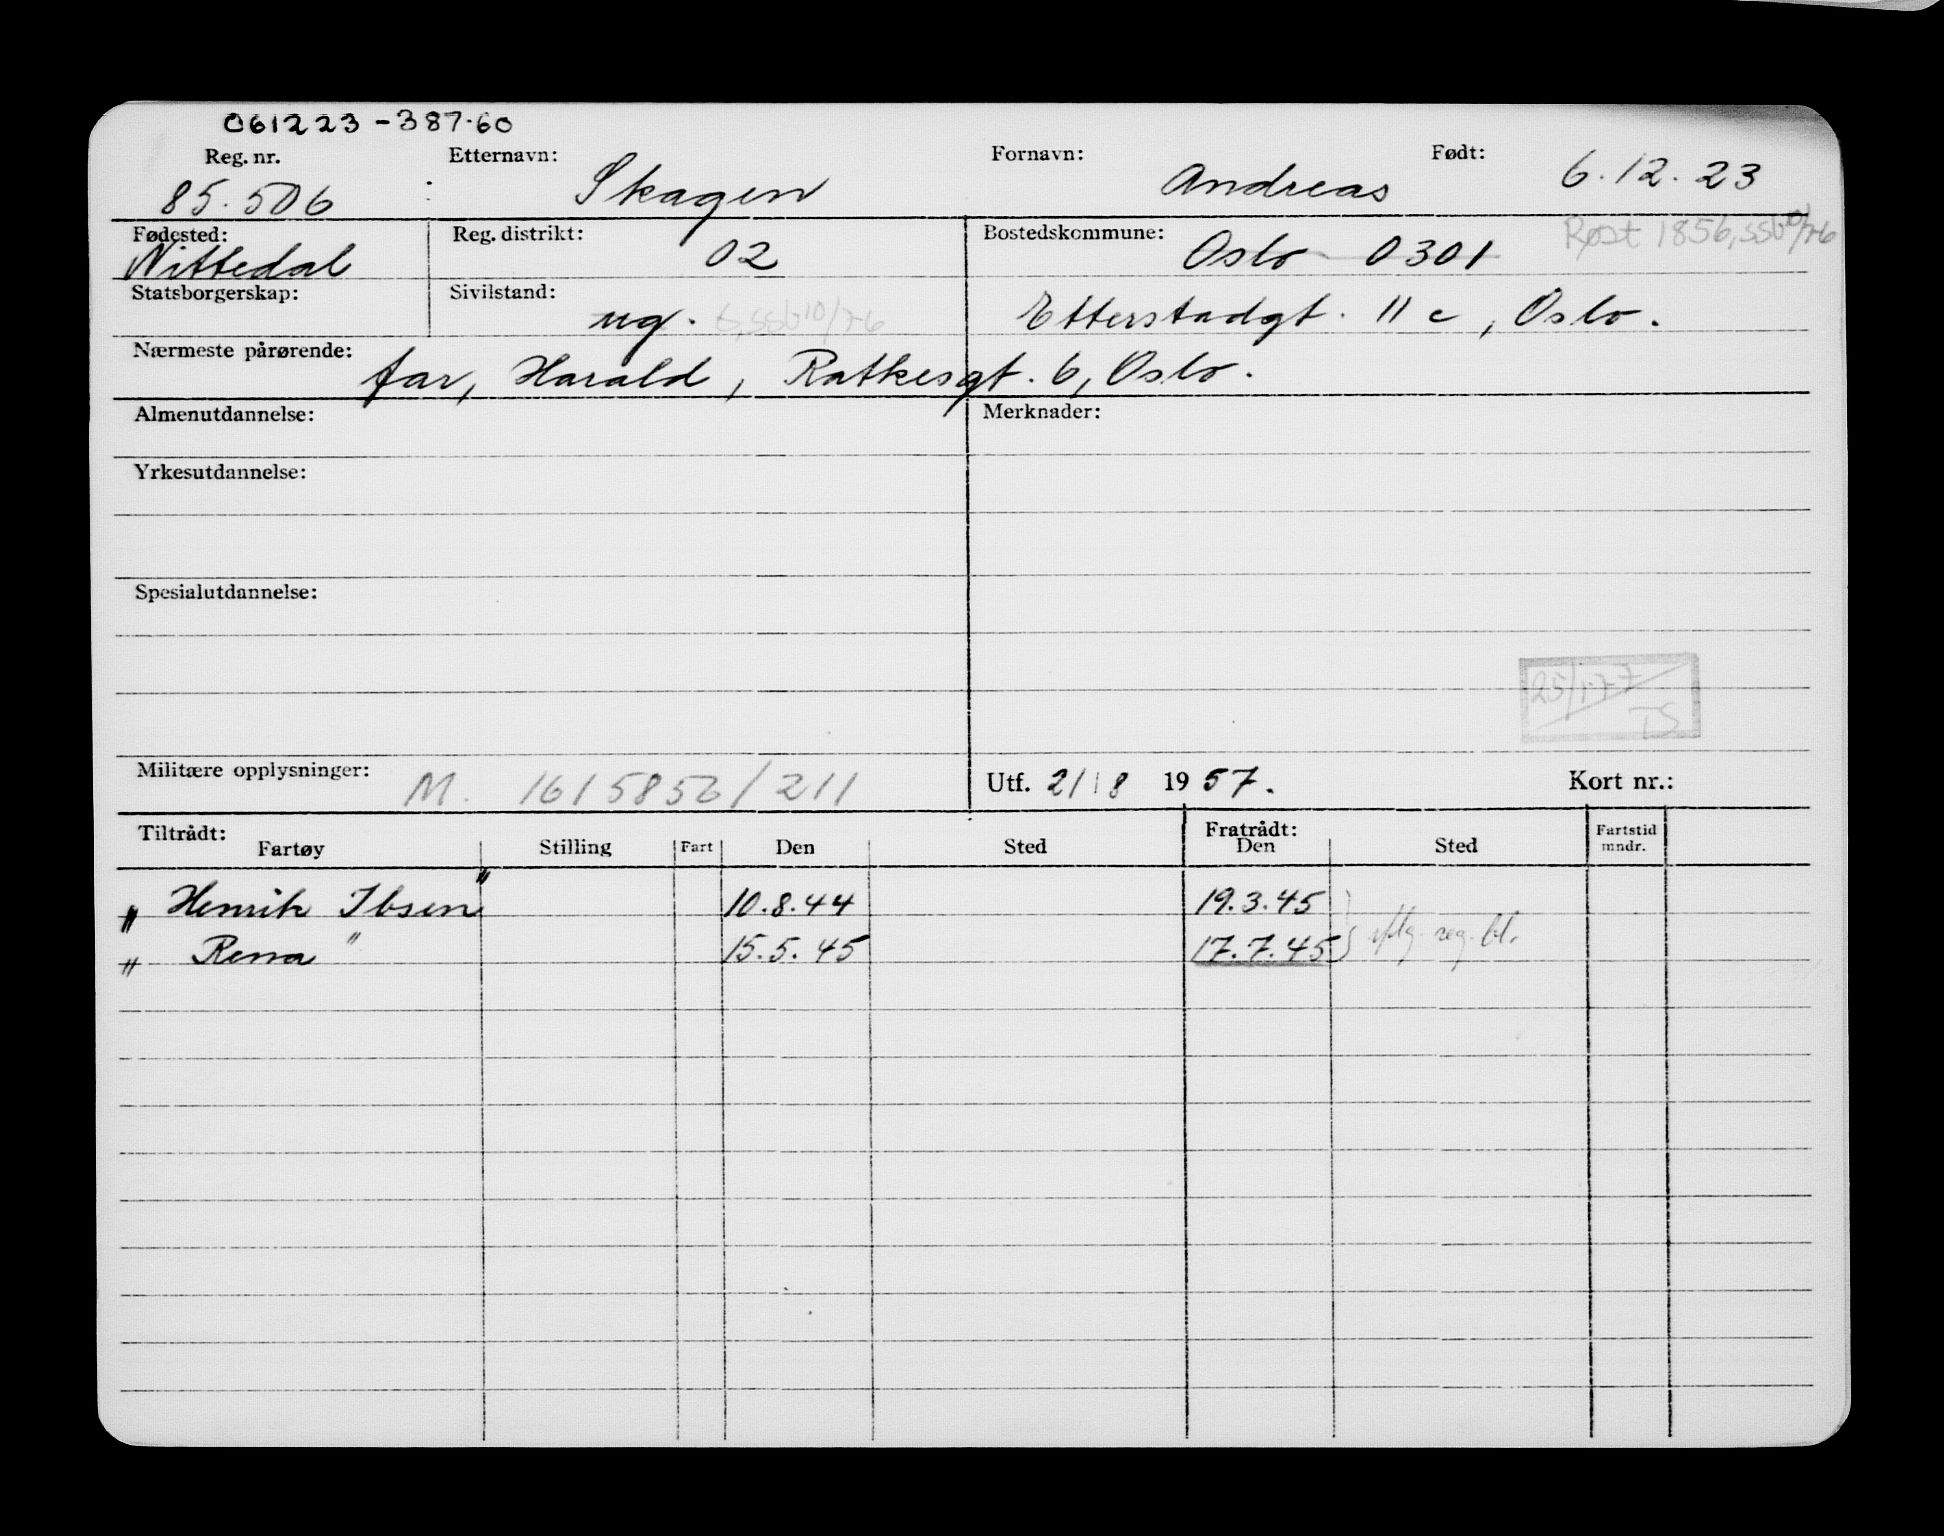 061223-387.60
Reg. nr. Etternavn: Fornavn: Født:
85.506 Skagen Andreas 6.12.23
Fødested: Reg. distrikt: Bostedskommune: Røst 1856, SSb 10/76
Nittedal 02 Oslo 0301
Statsborgerskap: Sivilstand:
ug. 6, ssb 10/76 Etterstadgt. 11 c, Oslo.
Nærmeste pårørende:
far, Harald, Ratkesgt. 6, Oslo.
Almenutdannelse: Merknader:
Yrkesutdannelse:
Spesialutdannelse:
25/1-77
TS
Militære opplysninger: M. 1615856/211 Utf. 21/8 1957. Kort nr.:
Tiltrådt: Fratrådt:
Fartøy Stilling Fart Den Sted Den Sted Fartstid mndr.
" Henrik Ibsen " 10.8.44 19.3.45
" Rena " 15.5.45 17.7.45 iflg. reg. bl.